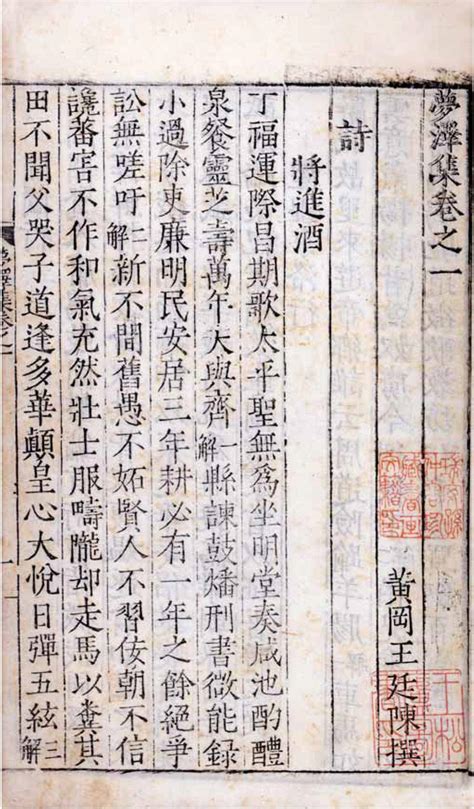 夢澤集卷之一
黃岡王廷陳撰
詩
將進酒
丁福運際昌期歌太平聖無爲坐明堂奏咸池酌醴
泉餐靈芝壽萬年天與齊一解縣諫鼓燔刑書微能錄
小過除吏廉明民安居三年耕必有一年之餘絕爭
訟無嗟吁二解新不間舊愚不妬賢人不習佞朝不信
讒蕃害不作和氣充然壯士服疇隴却走馬以糞其
田不聞父哭子道逢多華顛皇心大悅日彈五絃三解
夢澤集卷之一
一